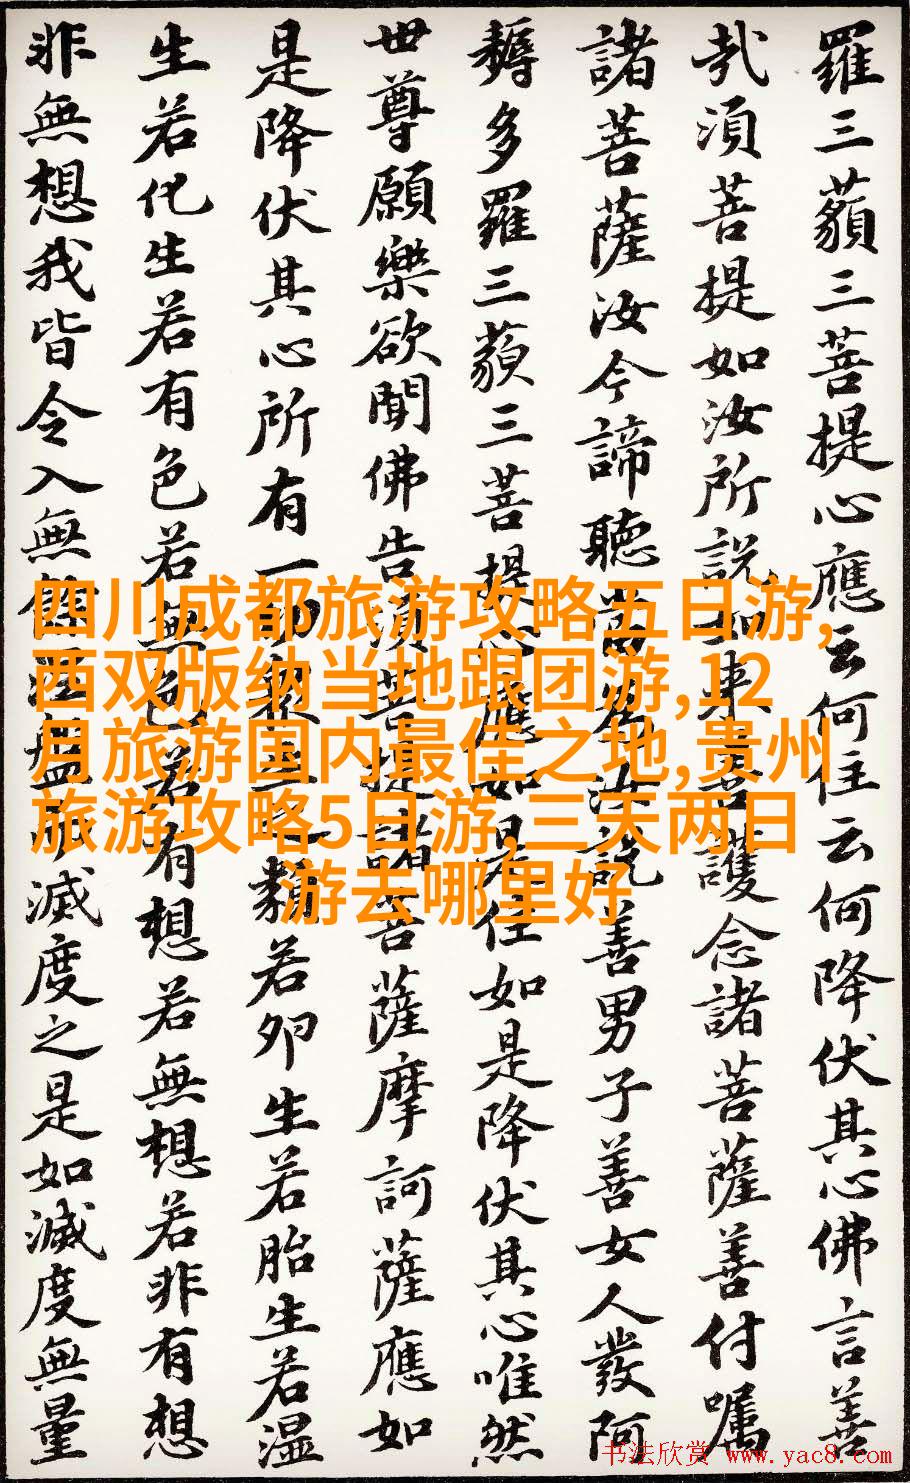 羅三藐三菩提心應云何住云何降伏其心佛言善
哉須菩提如汝所說如來善護念諸菩薩善付囑
諸菩薩汝今諦聽當為汝說善男子善女人發阿
耨多羅三藐三菩提心應如是住如是降伏其心唯然
世尊願樂欲聞佛告須菩提諸菩薩摩訶薩應如
是降伏其心所有一切眾生之類若卵生若胎生若温
生若化生若有色若無色若有想若無想若非有想
非無想我皆令入無餘涅槃而滅度之是如滅度無量
四川成都旅游攻略五日游,
西双版纳当地跟团游,12
月旅游国内最佳之地,贵州
旅游攻略5日游,三天两日
游去哪里好
书法欣赏 www.yac8.com